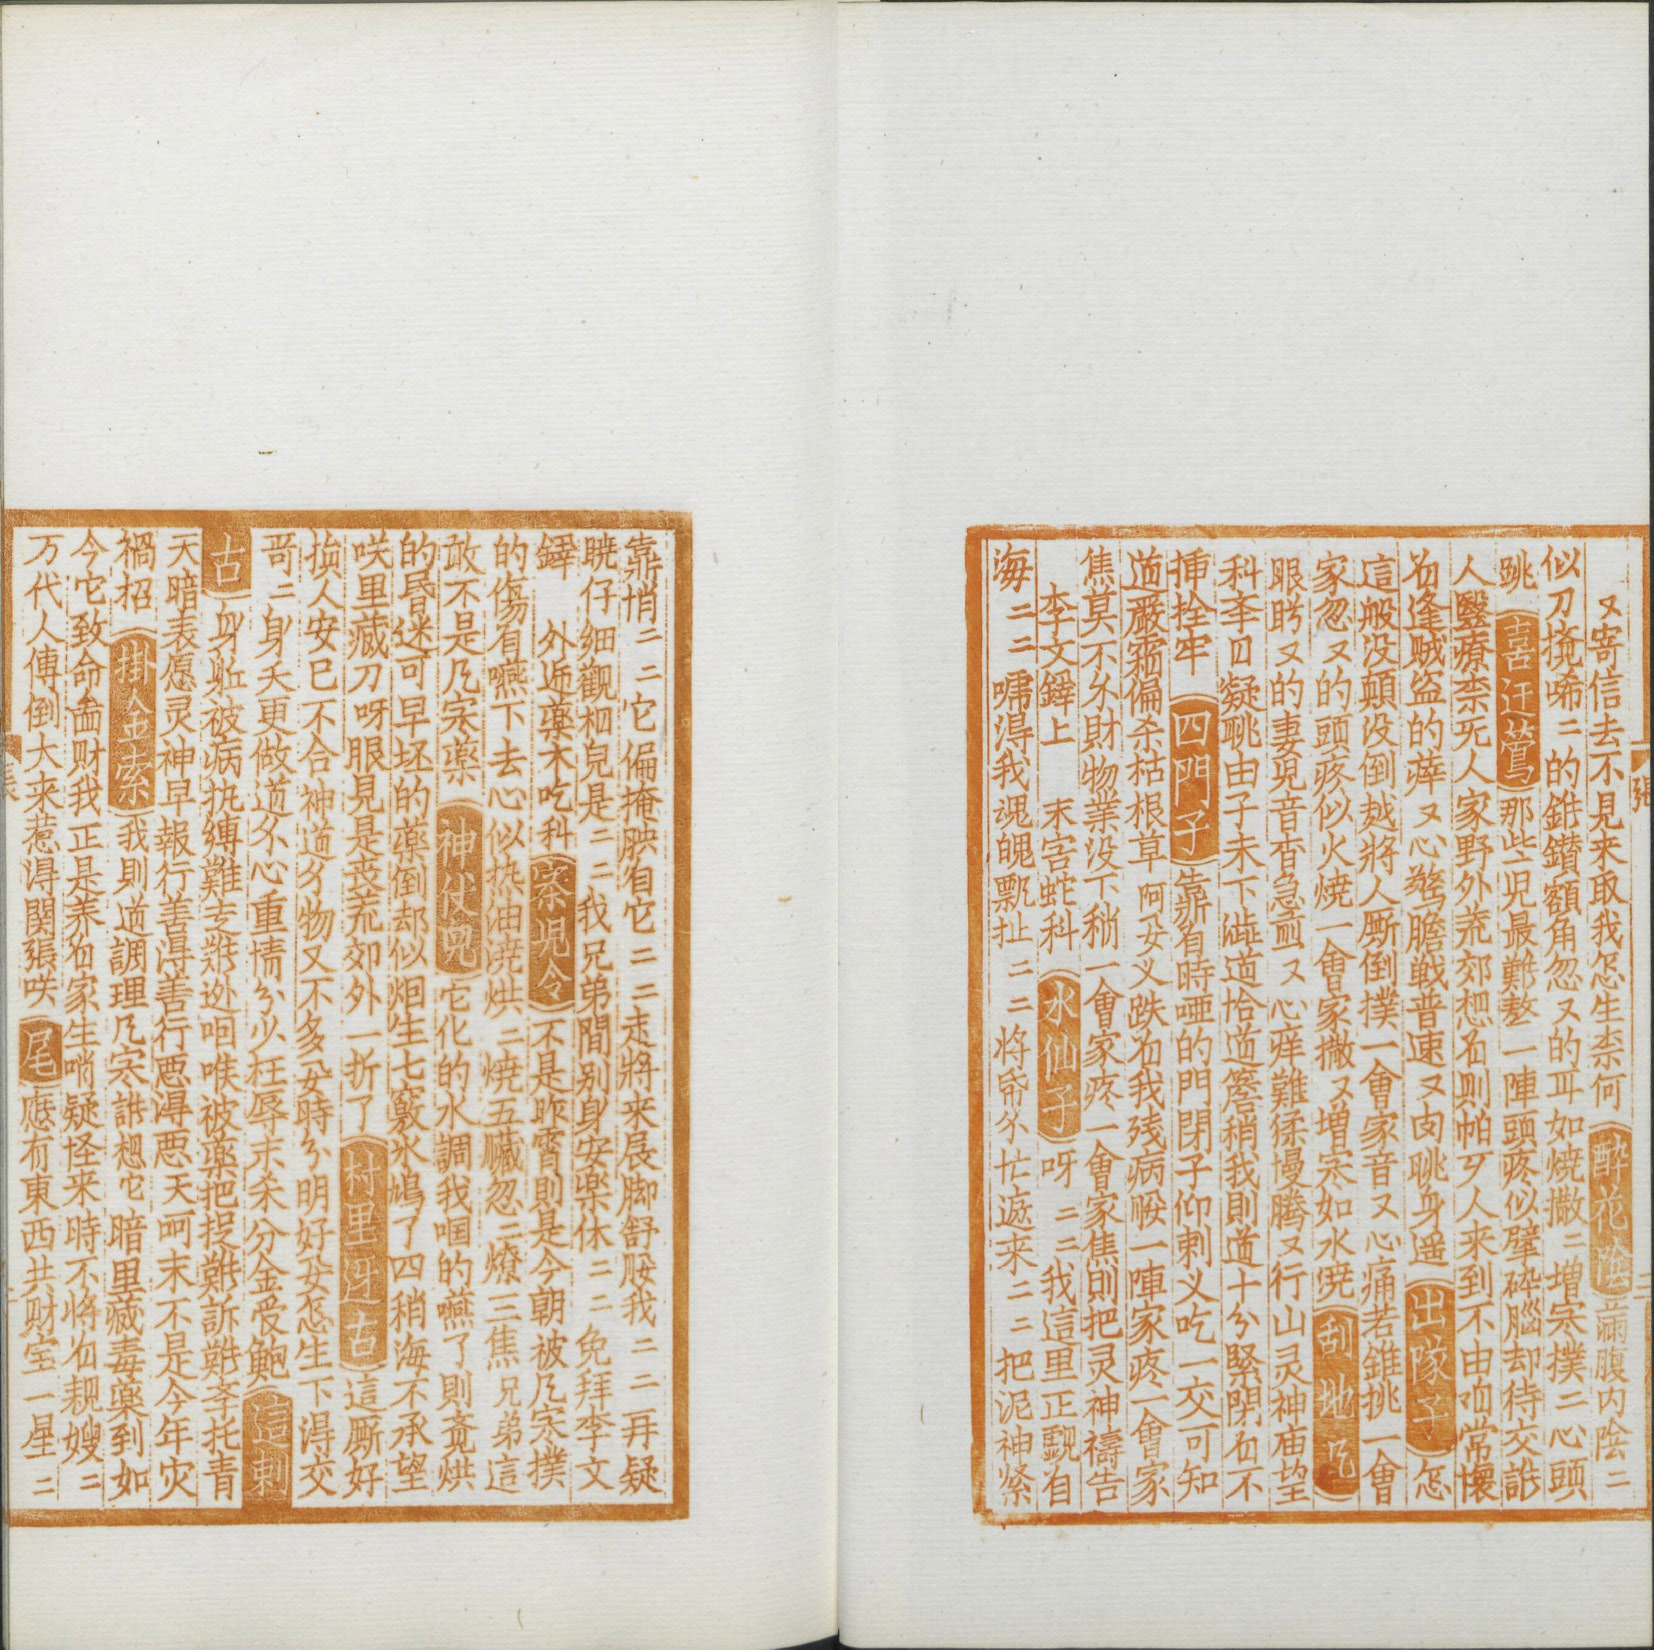 又寄信去不見来取我怎生柰何 醉花陰 滿腹内陰二
似刀攪唏二的錐鑚額角忽又的耳如燒撒二增寒撲二心頭
跳 喜迁鶯 那些兒最難熬一陣頭疼似擘碎腦却待交誰
人毉療柰死人家野外荒郊想名則帕歹人来到不由咱常懷
名逢贼盗的
這般没頭没倒越將人厮倒撲一會家音又心痛若錐挑一會
家忽又的頭疼似火燒一會家撒又增寒如水
眼 又的妻兒音杳急煎又心痒難揉慢腾又行山灵神庙望
科 凝眺由子未下澁道恰道簷稍我則道十分緊閉名不
揷拴牢 四門子 靠有時 的門閉子仰刺义吃一交可知
道嚴霜偏杀枯根草阿又义跌名我残病腰一陣家疼一會家
焦莫不分財物業没下稍一會家疼一會家焦則把灵神禱告
李文鐸上 末害蛇科 水仙子 呀二二我這里正覷自
海二二 得我魂魄飄扯二二将 忙 来二二把泥神緊
靠悄二二它偏掩映自它二二走將来展脚舒腰我二二再疑
曉仔細觀相皃是二二我兄弟間别身安楽休二二免拜李文
鐸 外 藥末吃科 寨兒令 不是昨霄則是今朝被冗寒撲
的傷有嚥下去心似热油澆烘二燒五臟忽二燎三焦兄弟這
敢不是冗寒藥 神仗兒 它化的水調我咽的嚥了則竟烘
的昏迷可早坯的藥倒却似烟生七竅氷 了四稍海不承望
咲里藏刀呀眼見是丧荒郊外一折了 村里迓古 這厮好
損人安已不合神道分物又不多又時分明好又怎生下得交
哥二身夭更做道分心重情分少枉辱末杀分金受鮑 這剌
古 身軀被病执縛難走難逊咽喉被藥把捉難訴難李托青
天暗表愿灵神早報行善得善行悪得悪天呵末不是今年灾
禍招 掛金索 我則道調理冗寒誰想它暗里藏毒藥到如
今它致命啚财我正是养名家生哨疑怪来時不將名親嫂二
万代人傅倒大来惹得関張咲 尾 應有東西共财宝一星二